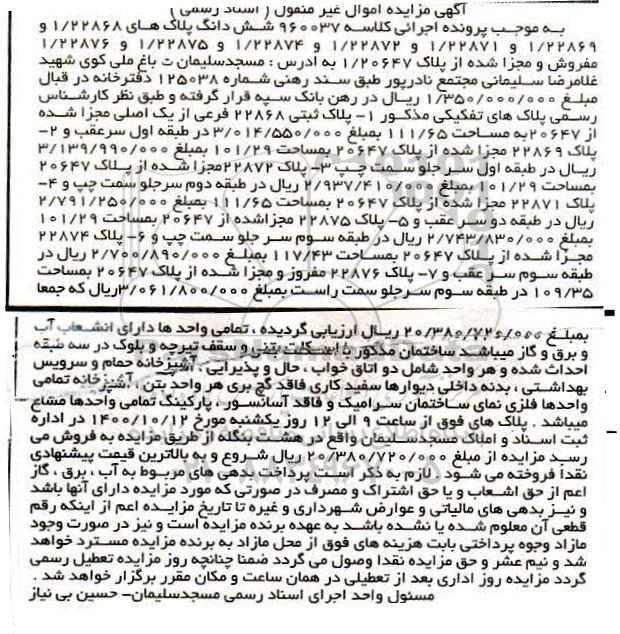 آگهی مزایده اموال غیر منقول ( اسناد رسمی )
به موجب پرونده اجرائی کلاسه ۹۶۰۰۳۷ شش دانگ پلاک های ۱/۲۲۸۶۸ و
۱/۲۲۸۶۹ و ۱/۲۲۸۷۱ و ۱/۲۲۸۷۲ و ۱/۲۲۸۷۴ و ۱/۲۲۸۷۵ و ۱/۲۲۸۷۶
مفروش و مجزا شده از پلاک ۱/۲۰۶۴۷ به ادرس : مسجدسلیمان ت باغ ملی کوی شهید
غلامرضا سلیمانی مجتمع نادرپور طبق سند رهنی شماره ۱۲۵۰۳۸ دفترخانه در قبال
مبلغ ۱/۳۵۰/۰۰۰/۰۰۰ ریال در رهن بانک سپه قرار گرفته و طبق نظر کارشناس
رسمی پلاک های تفکیکی مذکور ۱- پلاک ثبتی ۲۲۸۶۸ فرعی از یک اصلی مجزا شده
از ۲۰۶۴۷به مساحت ۱۱۱/۶۵ بمبلغ ۳/۰۱۴/۵۵۰/۰۰۰ در طبقه اول سرعقب و ۲-
پلاک ۲۲۸۶۹ مجزا شده از پلاک ۲۰۶۴۷ بمساحت ۱۰۱/۲۹ بمبلغ ۳/۱۳۹/۹۹۰/۰۰۰
ریال در طبقه اول سر جلو سمت چپ ۳- پلاک ۲۲۸۷۲مجزا شده از پلاک ۲۰۶۴۷
بمساحت ۱۰۱/۲۹ بمبلغ ۲/۹۳۷/۴۱۰/۰۰۰ ریال در طبقه دوم سرجلو سمت چپ و ۴-
پلاک ۲۲۸۷۱ مجزا شده از پلاک ۲۰۶۴۷ بمساحت ۱۱۱/۶۵ بمبلغ ۲/۷۹۱/۲۵۰/۰۰۰
ریال در طبقه دو سر عقب و ۵- پلاک ۲۲۸۷۵ مجزاشده از ۲۰۶۴۷ بمساحت ۱۰۱/۲۹
بمبلغ ۲/۷۴۳/۸۳۰/۰۰۰ ریال در طبقه سوم سر جلو سمت چپ و ۶- پلاک ۲۲۸۷۴
مجزا شده از پلاک ۲۰۶۴۷ بمساحت ۱۱۷/۴۳ بمبلغ ۲/۷۰۰/۸۹۰/۰۰۰ ریال در
طبقه سوم سر عقب و ۷- پلاک ۲۲۸۷۶ مفروز و مجزا شده از پلاک ۲۰۶۴۷ بمساحت
۱۰۹/۳۵ در طبقه سوم سر جلو سمت راست بمبلغ ۳/۰۶۱/۸۰۰/۰۰۰ریال که جمعا
بمبلغ ۲۰/۳۸۰/۷۲۰/۰۰۰ ریال ارزیابی گردیده ، تمامی واحد ها دارای انشعاب آب
و برق و گاز میباشد ساختمان مذکور با اسکلت بتنی و سقف تیرچه و بلوک در سه طبقه
احداث شده و هر واحد شامل دو اتاق خواب ، حال و پذیرایی ، آشپزخانه حمام و سرویس
بهداشتی ، بدنه داخلی دیوارها سفید کاری فاقد گچ بری هر واحد بتن ، آشپزخانه تمامی
واحدها فلزی نمای ساختمان سرامیک و فاقد آسانسور ، پارکینگ تمامی واحدها مشاع
میباشد . پلاک های فوق از ساعت ۹ الی ۱۲ روز یکشنبه مورخ ۱۴۰۰/۱۰/۱۲ در اداره
ثبت اسناد و املاک مسجدسلیمان واقع در هشت بنگله از طریق مزایده به فروش می
رسد مزایده از مبلغ ۲۰/۳۸۰/۷۲۰/۰۰۰ ریال شروع و به بالاترین قیمت پیشنهادی
نقدا فروخته می شود . لازم به ذکر است پرداخت بدهی های مربوط به آب ، برق ، گاز
اعم از حق اشعاب و یا حق اشتراک و مصرف در صورتی که مورد مزایده دارای آنها باشد
و نیز بدهی های مالیاتی و عوارض شهرداری و غیره تا تاریخ مزایده اعم از اینکه رقم
قطعی آن معلوم شده یا نشده باشد به عهده برنده مزایده است و نیز در صورت وجود
مازاد وجوه پرداختی بابت هزینه های فوق از محل مازاد به برنده مزایده مسترد خواهد
شد و نیم عشر و حق مزایده نقدا وصول می گردد ضمنا چنانچه روز مزایده تعطیل رسمی
گردد مزایده روز اداری بعد از تعطیلی در همان ساعت و مکان مقرر برگزار خواهد شد .
مسئول واحد اجرای اسناد رسمی مسجدسلیمان- حسین بی نیاز